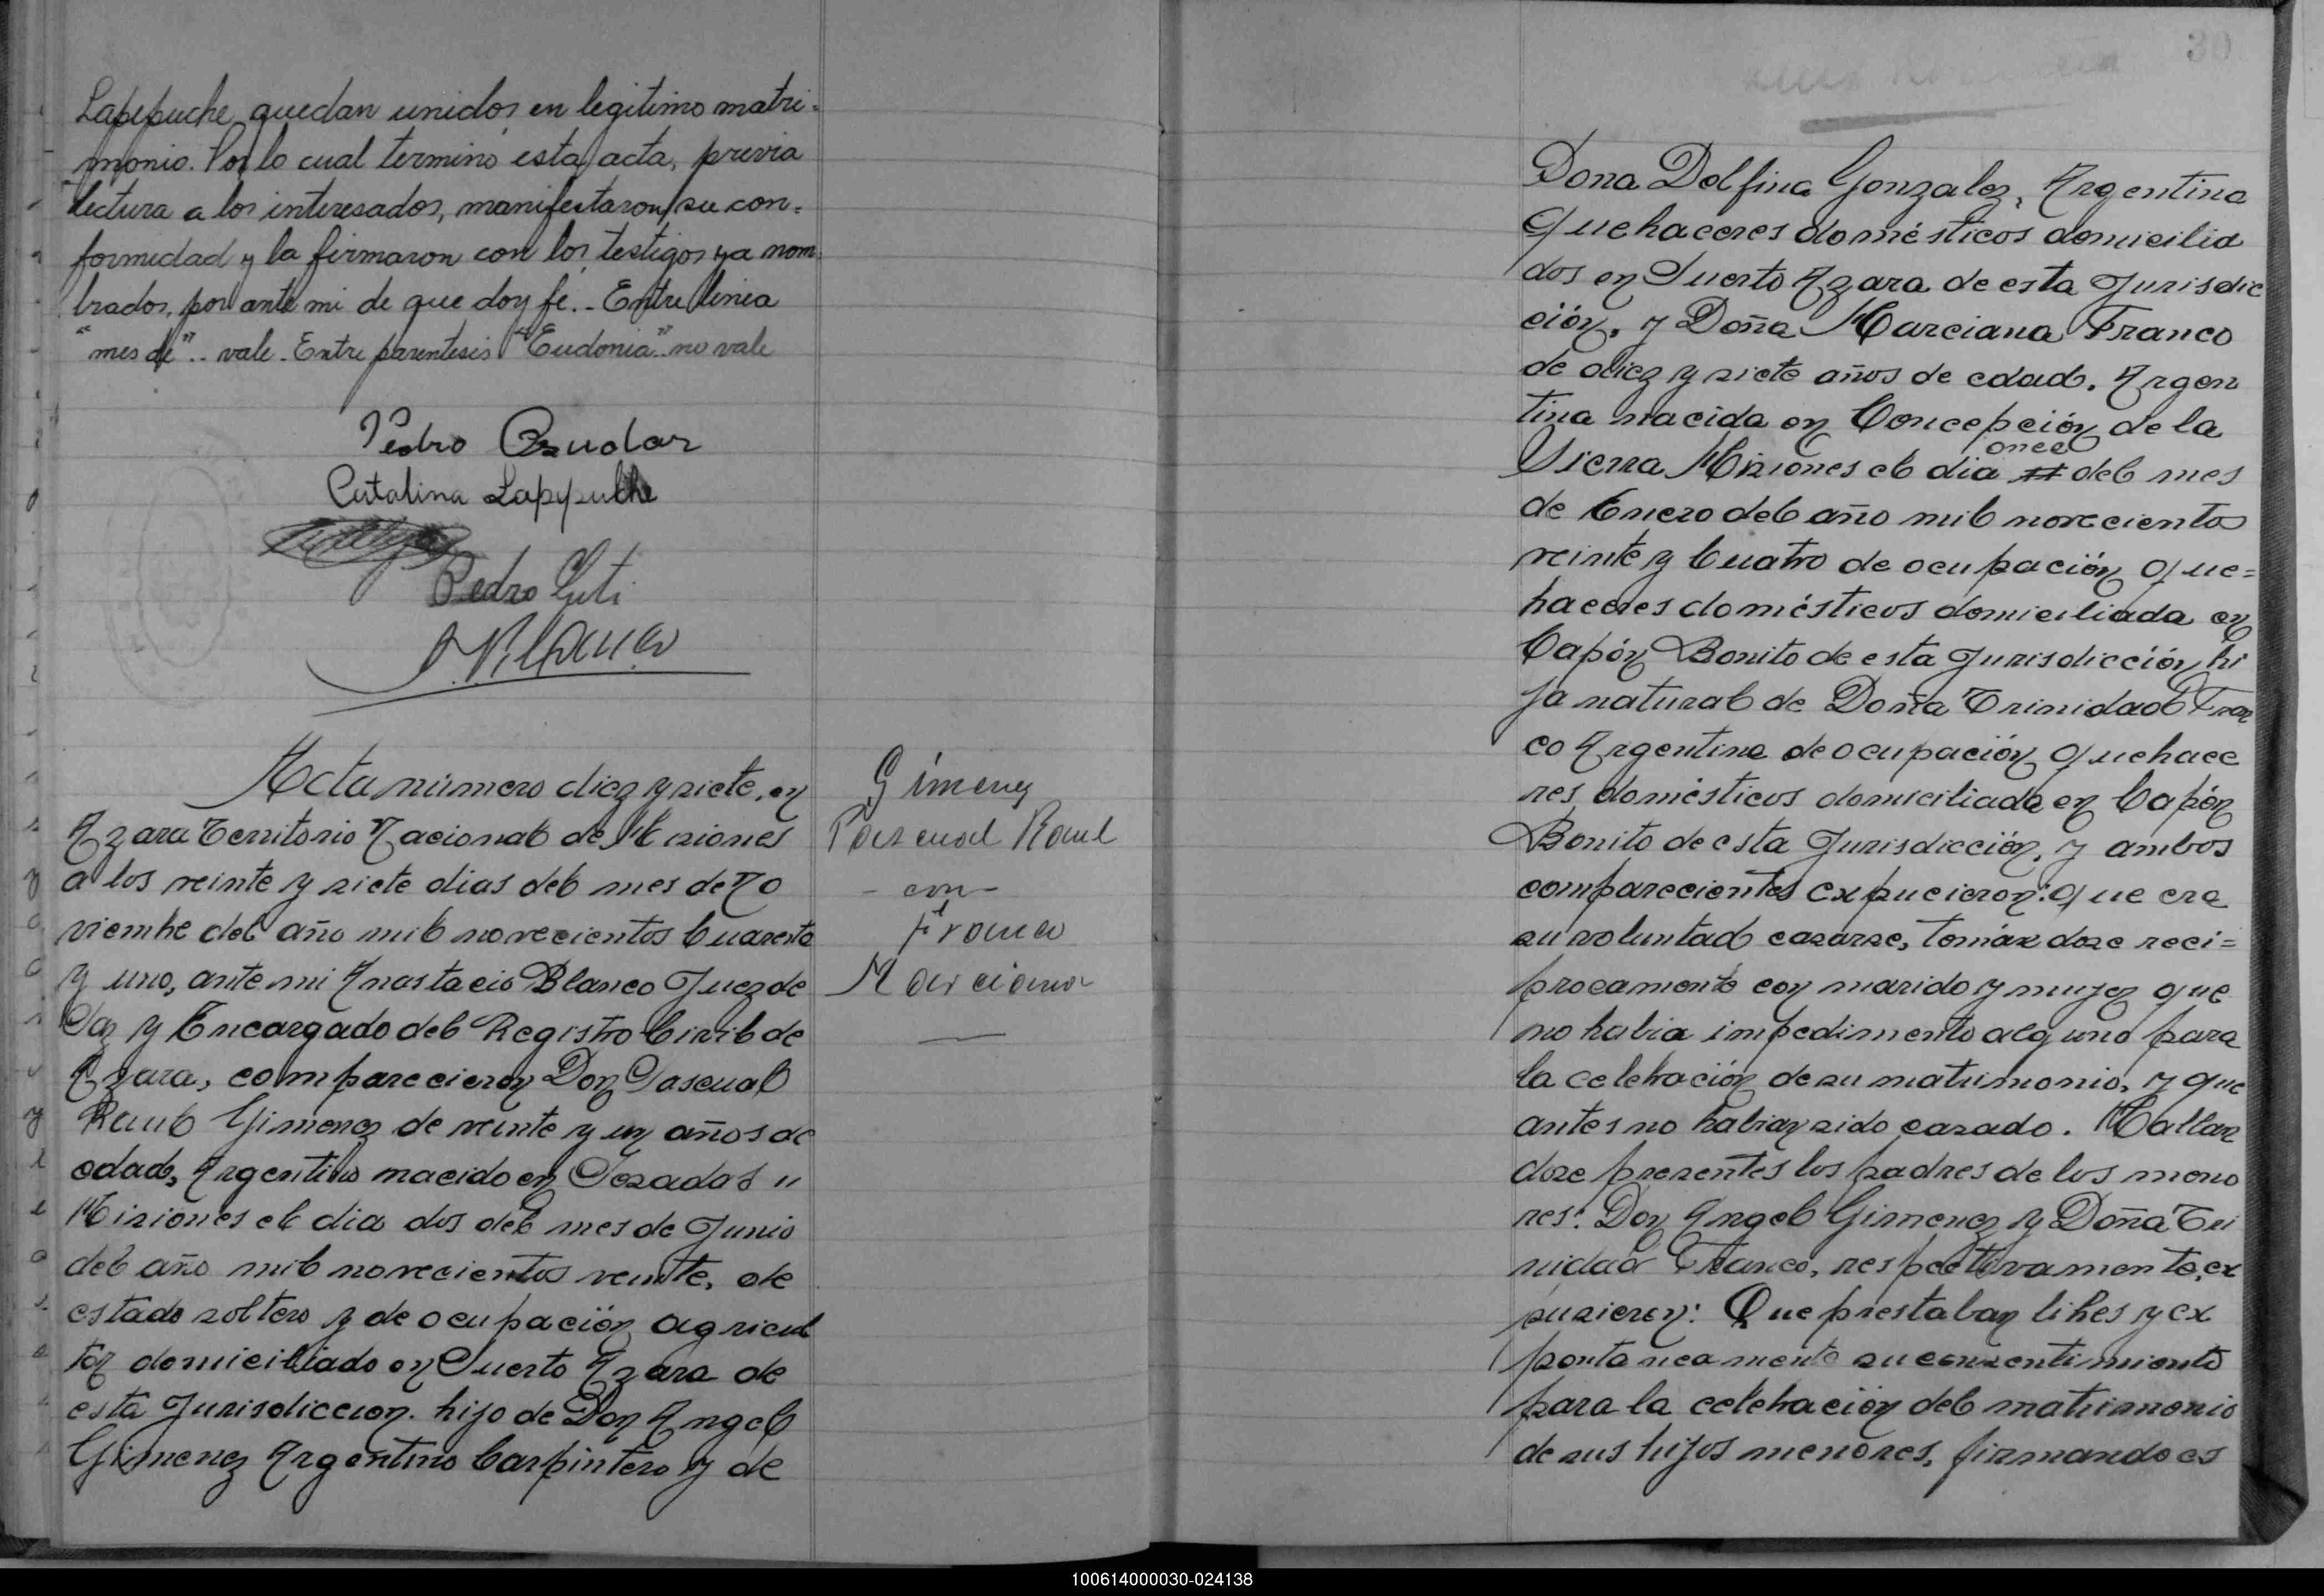 Lapepuche quedan unidos en legitimo matri=
monio. Por lo cual terminó esta acta, previa
lectura a los interesados, manifestaron su con=
formidad y la firmaron con los testigos ya nom
brados, por ante mi de que doy fe.- Entre linea
"mes de".. vale. Entre parentesis "Eudonia" no vale
Pedro
Catalina Lapepuche
Pedro
Acta número diez y siete, en
Azara Territorio Nacional de Misiones
a los veinte y siete dias del mes de No
viembre del año mil novecientos Cuarenta
y uno, ante mi Anastacio Blanco Juez de
Paz y Encargado del Registro Civil de
Azara, comparecieron Don Pascual
Raul Gimenez de veinte y un años de
edad, Argentino nacido en Posadas "
Misiones el dia dos del mes de Junio
del año mil novecientos veinte, de
estado soltero y de ocupación agricul
tor domiciliado en Puerto Azara de
esta Jurisdiccion. hijo de Don Angel
Gimenez Argentino Carpintero y de
Gimenez
Pascual Raul
- con -
Franco
Marciana
30
Dona Delfina Gonzalez, Argentina
Quehaceres domésticos domicilia
dos en Puerto Azara de esta Jurisdic
ción, y Doña Marciana Franco
de diez y siete años de edad, Argen
tina nacida en Concepción de la
Sierra Misiones el dia once del mes
de Enero del año mil novecientos
veinte y Cuatro de ocupación Que=
haceres domésticos domiciliada en
Capón Bonito de esta Jurisdicción hi
ja natural de Doña Trinidad Fran
co Argentina de ocupación Quehace
res domésticos domiciliada en Capón
Bonito de esta Jurisdicción, y ambos
comparecientes expucieron: Que era
su voluntad casarse, tomándose reci=
procamente con marido y mujer que
no habia impedimento alguno para
la celebración de su matrimonio, y que
antes no habian sido casado. Hallan
dose presentes los padres de los meno
res: Don Angel Gimenez y Doña Tri
nidad Franco, respectivamente, ex
pusieron: Que prestaban libres y ex
pontaneamente su consentimiento
para la celebración del matrimonio
de sus hijos menores, firmando es
100614000030-024138